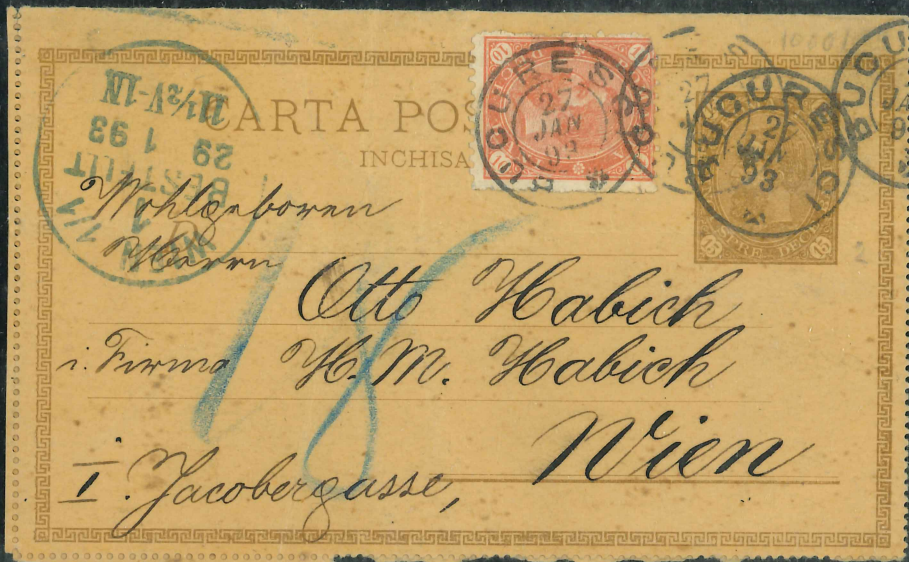 CARTA POS
INCHISA
10
BUCURESCI
27
JAN
93
BUCURESCI
27
JAN
93
15 15
SPRE-DECE
WIEN
1/1
BESTELLT
29 1 93
11½V-1N
Wohlgeboren
Herrn
Otto Habich
i. Firma H. M. Habich
Wien
I. Jacobergasse,
18